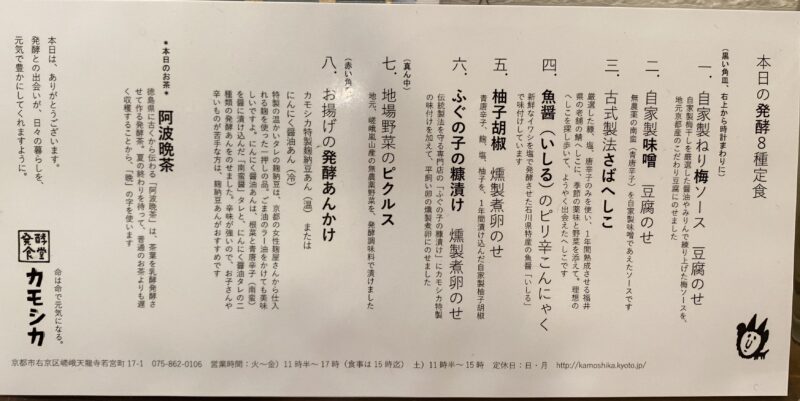 本日の発酵8種定食
(黒い角皿、右上から時計まわりに)
一. 自家製ねり梅ソース 豆腐のせ
自家製梅干しを厳選した醤油やみりんで練り上げた梅ソースを、
地元京都産のこだわり豆腐にのせました
二. 自家製味噌 豆腐のせ
無農薬の南蛮(青唐辛子)を自家製味噌であえたソースです
三. 古式製法さばへしこ
厳選した糠、塩、唐辛子のみを使い、1年間熟成させる福井
県の老舗の鯖へしこに、季節の薬味と野菜を添えて。理想の
へしこを探し歩いて、ようやく出会えたへしこです
四. 魚醤(いしる)のピリ辛こんにゃく
新鮮なイワシを塩で発酵させた石川県特産の魚醤「いしる」
で味付けしています
五. 柚子胡椒 燻製煮卵のせ
青唐辛子、麹、塩、柚子を、1年間漬け込んだ自家製柚子胡椒
六. ふぐの子の糠漬け 燻製煮卵のせ
伝統製法を守る専門店の「ふぐの子の糠漬け」にカモシカ特製
の味付けを加えて、平飼い卵の燻製煮卵にのせました
(真ん中)
七. 地場野菜のピクルス
地元、嵯峨嵐山産の無農薬野菜を、発酵調味料で漬けました
(赤い角皿)
八. お揚げの発酵あんかけ
カモシカ特製麹納豆あん(温) または
にんにく醤油あん(冷)
特製の温かいタレの麹納豆は、京都の女性麹屋さんから仕入
れる麹を使った一押しの品。ごま油のラー油をかけても美味
しいですよ。にんにく醤油あんは、根菜と青唐辛子(南蛮)
を醤油に漬け込んだ「南蛮醤」タレと、にんにく醤油タレの二
種類の発酵あんをのせました。辛味が強いので、お子さんや
辛いものが苦手な方は、麹納豆あんがおすすめです
*本日のお茶*
阿波晩茶
徳島県に古くから伝わる「阿波晩茶」は、茶葉を乳酸発酵さ
せて作る発酵茶。夏の終わりを待って、普通のお茶よりも遅
く収穫することから、「晩」の字を使います
本日は、ありがとうございます。
発酵との出会いが、日々の暮らしを、
元気で豊かにしてくれますように。
命は命で元気になる。
発酵食堂
カモシカ
京都市右京区嵯峨天龍寺若宮町17-1 075-862-0106 営業時間:火〜金)11時半〜17時(食事は15時迄) 土)11時半〜15時 定休日:日・月 http://kamoshika.kyoto.jp/